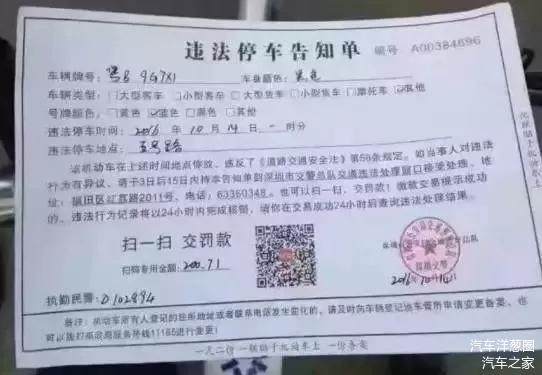 违法停车告知单 编号 A00384696
车辆牌号: 粤B 9G7X1 车身颜色: 黑色
车辆类型: □大型客车 □小型客车 □大型货车 □小型货车 □摩托车 ☑其他
号牌颜色: □黄色 ☑蓝色 □黑色 □其他
违法停车时间: 2016年 10月 14日 一 时分
违法停车地点:
该机动车在上述时间地点停放，违反了《道路交通安全法》第56条规定。如当事人对违法
行为有异议，请于3日后15日内持本告知单到深圳市交警总队交通违法处理窗口接受处理。地
址：福田区红荔路2011号。电话：63360348。也可以扫一扫，交罚款！缴款交易提示成功
的，违法行为记录将以24小时内完成核销，请你在交易成功24小时后查询违法处理结果。
扫一扫 交罚款
扫码专用金额: 200.71
执勤民警: 0102894
备注: 机动车所有人登记的住所地址或者联系电话发生变化的，请及时向车辆登记地车管所申请变更备案，也
可以拨打 热线11185进行变更！
一式二份 一联贴于机动车上 一份备案
汽车洋葱圈
汽车之家